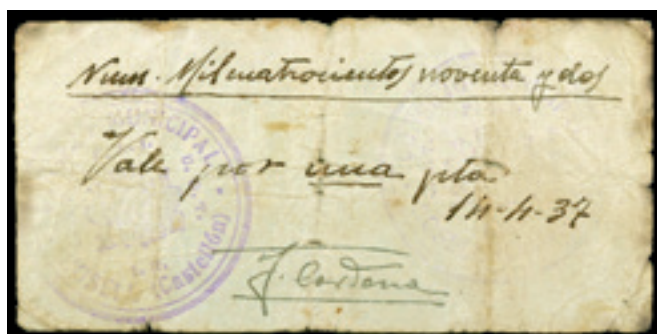 Num. Milcuatrocientos noventa y dos
Vale por una pta
14-4-37
J. Cardona
MUNICIPAL
(Castellón)